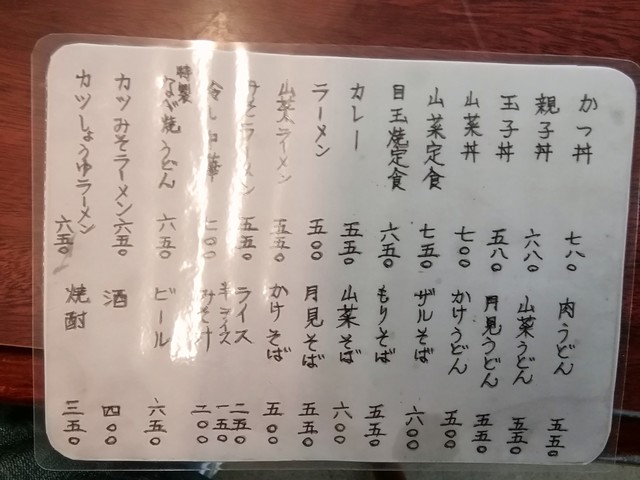 かつ丼 七八〇
親子丼 六八〇
玉子丼 五八〇
山菜丼 七〇〇
山菜定食 七五〇
目玉焼定食 六五〇
カレー 五五〇
ラーメン 五〇〇
山菜ラーメン 五五〇
みそラーメン 五五〇
冷し中華 七〇〇
特製
なべ焼うどん 六五〇
カツみそラーメン 六五〇
カツしょうゆラーメン 六五〇
肉うどん 五五〇
山菜うどん 五五〇
月見うどん 五五〇
かけうどん 五〇〇
ザルそば 六〇〇
もりそば 五五〇
山菜そば 六〇〇
月見そば 五五〇
かけそば 五〇〇
ライス 二五〇
半ライス 一五〇
みそ汁 二〇〇
ビール 六五〇
酒 四〇〇
焼酎 三五〇